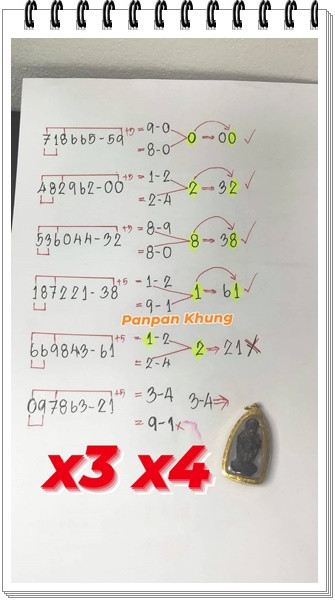 718665-59 +5 = 9-0 0 ⇒ 00 ✓
= 8-0
482962-00 +5 = 1-2 2 ⇒ 32 ✓
= 2-4
536044-32 +5 = 8-9 8 ⇒ 38 ✓
= 8-0
187221-38 +5 = 1-2 1 ⇒ 61 ✓
= 9-1
Panpan Khung
669843-61 +5 = 1-2 2 ⇒ 21 X
= 2-4
097863-21 +5 = 3-4 3-4 ⇒
= 9-1x
x3 x4